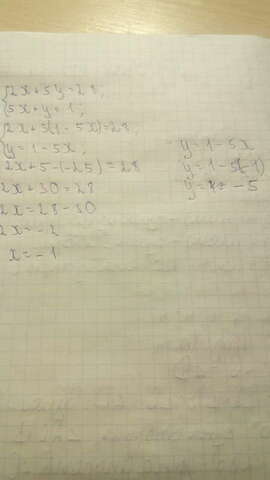 {2x+5y=28;
{5x+y=1;
{2x+5(1-5x)=28;
{y=1-5x;
2x+5-(-25)=28
2x+30=28
2x=28-30
2x=-2
x=-1
y=1-5x
y=1-5(-1)
y= -5